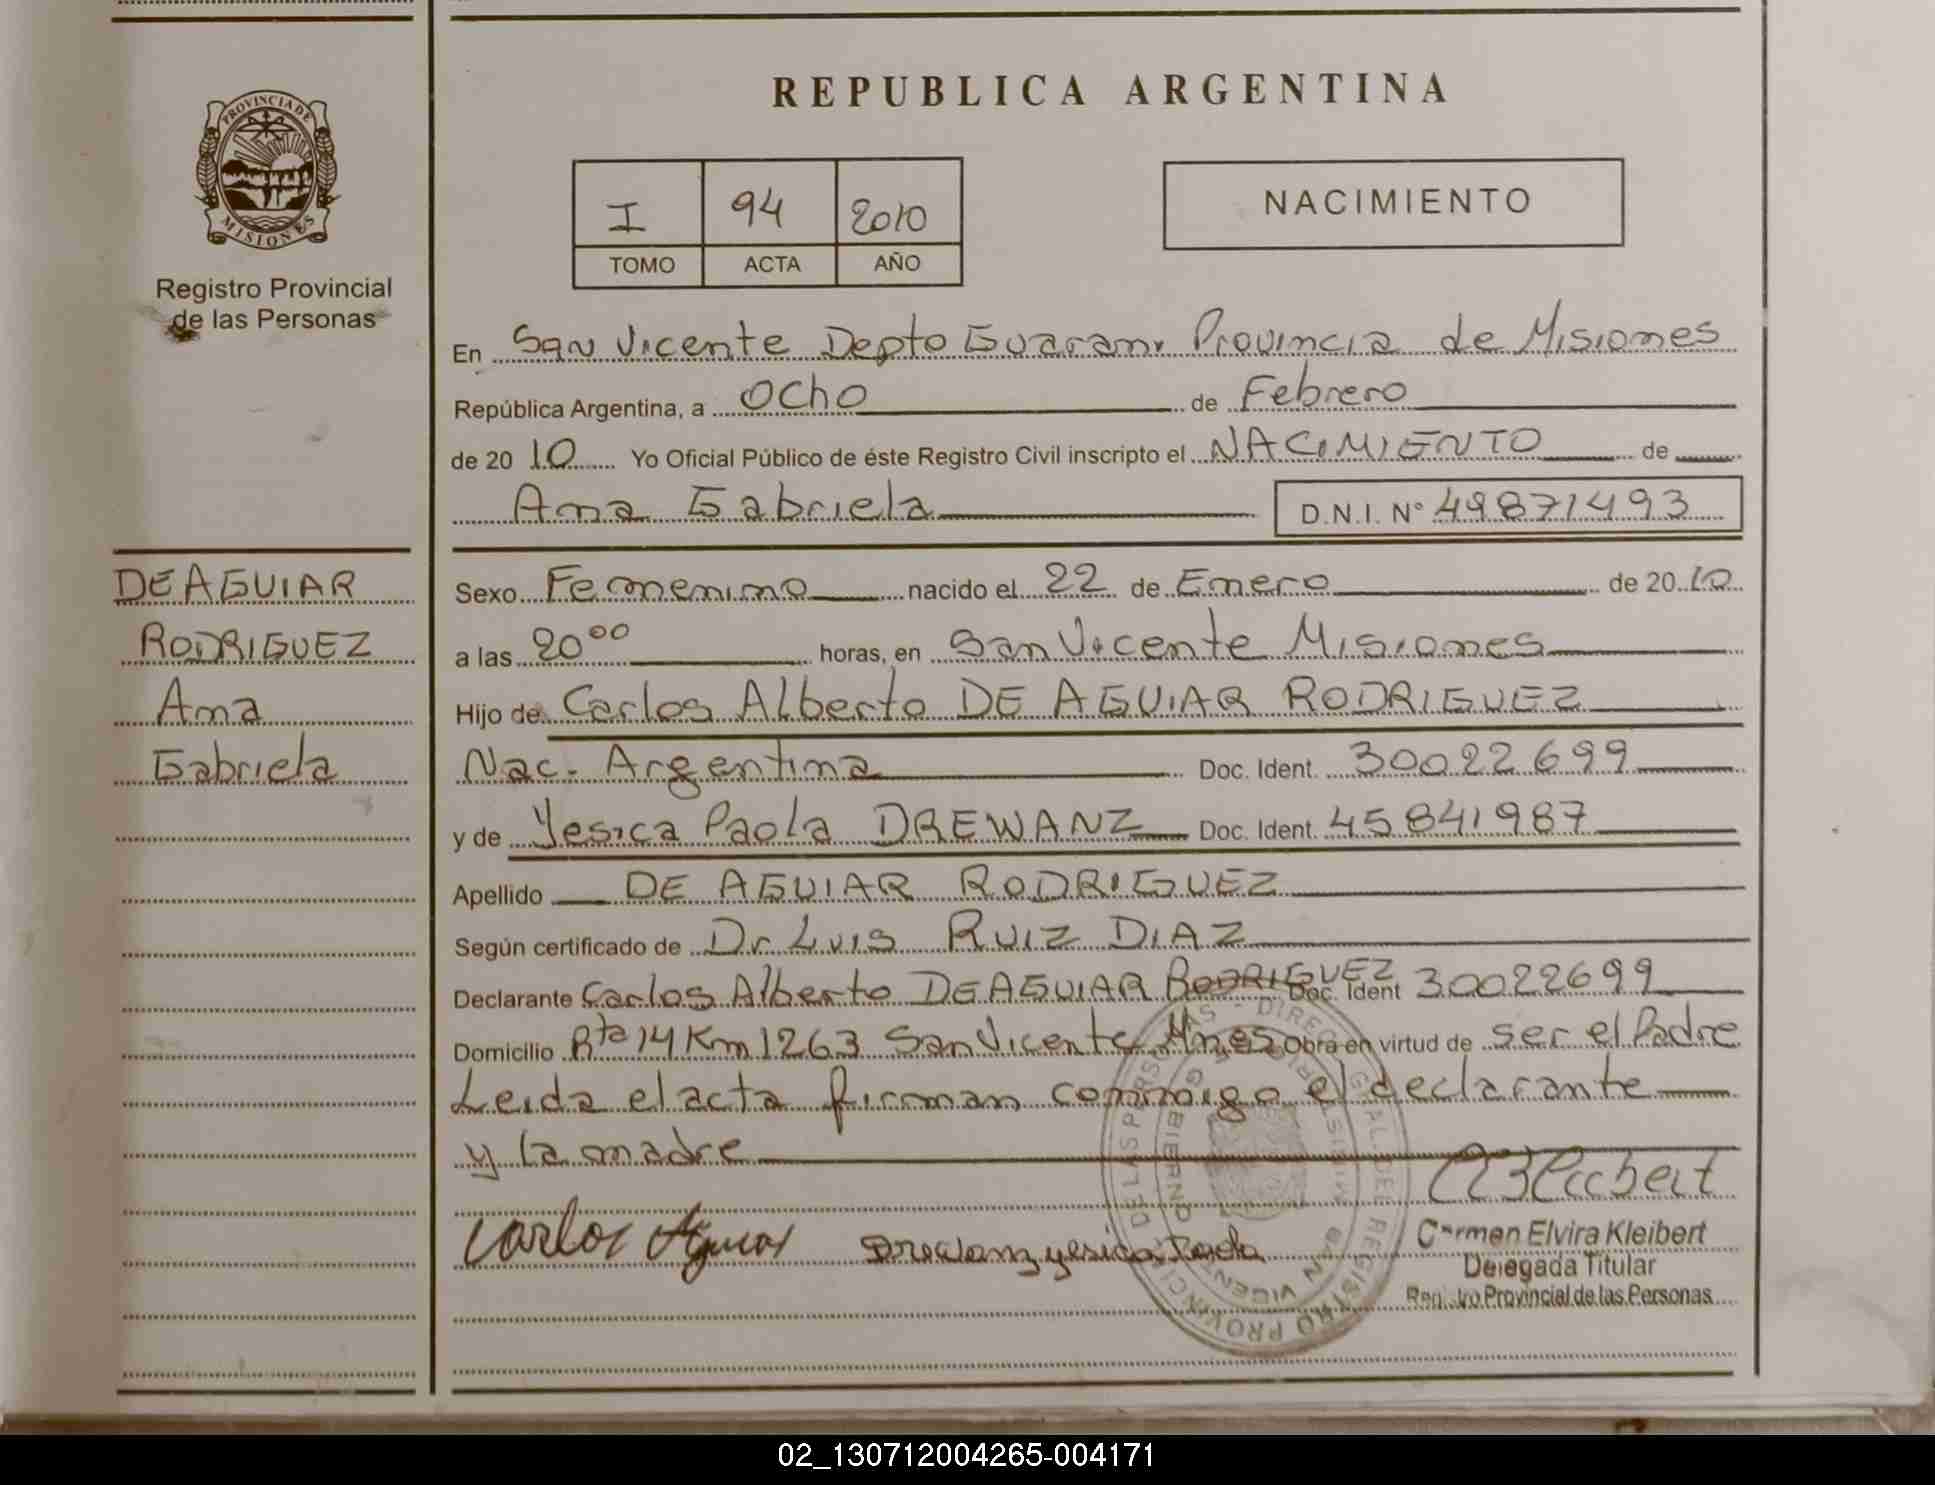 REPUBLICA ARGENTINA
PROVINCIA DE
MISIONES
Registro Provincial
de las Personas
I 94 2010
TOMO ACTA AÑO
NACIMIENTO
En San Vicente Depto Guarani Provincia de Misiones
República Argentina, a Ocho de Febrero
de 20 10 Yo Oficial Público de éste Registro Civil inscripto el NACIMIENTO de
Ana Gabriela D.N.I. Nº 49871493
DE AGUIAR
RODRIGUEZ
Ana
Gabriela
Sexo Femenino nacido el 22 de Enero de 20 10
a las 20 00 horas, en San Vicente Misiones
Hijo de Carlos Alberto DE AGUIAR RODRIGUEZ
Nac. Argentina Doc. Ident. 30022699
y de Yesica Paola DREWANZ Doc. Ident. 45841987
Apellido DE AGUIAR RODRIGUEZ
Según certificado de Dr Luis RUIZ DIAZ
Declarante Carlos Alberto DE AGUIAR RODRIGUEZ Doc. Ident 30022699
Domicilio Rta 14 Km 1263 San Vicente Mnes Obra en virtud de ser el Padre
Leida el acta firman conmigo el declarante
y la madre
Carlos Aguiar Drewanz yesica Paola
Carmen Elvira Kleibert
Delegada Titular
Registro Provincial de las Personas
02_130712004265-004171